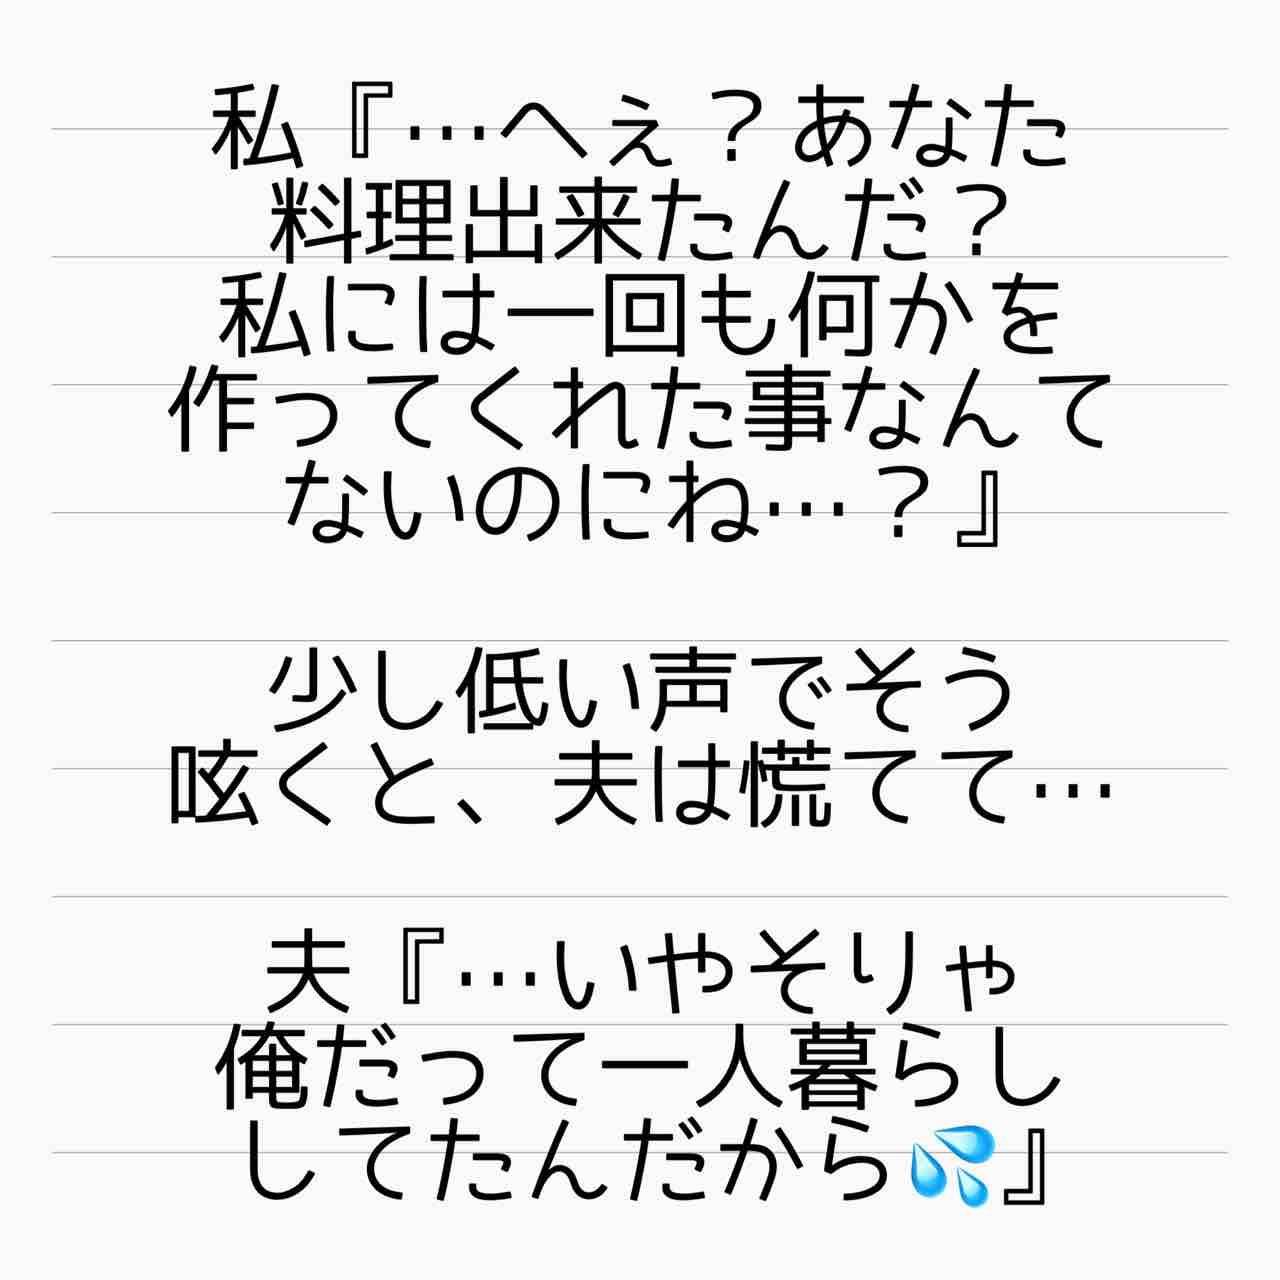 私『…へぇ？あなた
料理出来たんだ？
私には一回も何かを
作ってくれた事なんて
ないのにね…？』
少し低い声でそう
呟くと、夫は慌てて…
夫『…いやそりゃ
俺だって一人暮らし
してたんだから💦』